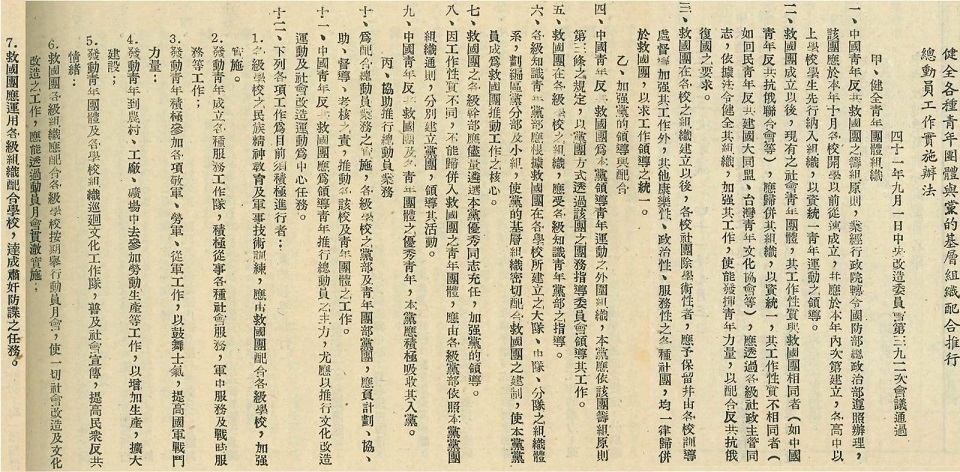 健全各種青年團體與黨的基層組織配合推行
總動員工作實施辦法
四十一年九月一日中央改造委員會第三九二次會議通過
甲、健全青年團體組織
一、中國青年反共救國團之籌組原則，業經行政院轉令國防部總政治部遵照辦理，
該團應於本年十月各校開學以前從速成立，並應於本年內次第建立，各高中以
上學校學生先行納入組織，以資統一青年運動之領導。
二、救國團成立以後，現有之社會青年團體，其工作性質與救國團相同者（如中國
青年反共抗俄聯合會等），應歸併其組織，以資統一，其工作性質不相同者（
如回民青年反共建國大同盟、台灣青年文化協會等），應透過各級社政主管同
志，依據法令健全其組織，加強其工作，使能發揮青年力量，以配合反共抗俄
復國之要求。
三、救國團在各校之組織建立以後，各校社團除學術性者，應予保留并由各校訓導
處督導加強工作外，其他康樂性、政治性、服務性之各種社團，均一律歸併
於救國團，以求工作領導之統一。
乙、加強黨的領導與配合
四、中國青年反共救國團為本黨領導青年運動之外圍組織，本黨應依該團籌組原則
第三條之規定，以黨團方式透過該團之團務指導委員會領導其工作。
五、救國團在各級學校之組織，應受各級知識青年黨部之指導。
六、各級知識青年黨部應根據救國團在各學校所建立之大隊、中隊、分隊之組織體
系，劃編區黨分部及小組，使黨的基層組織密切配合救國團之建制，使本黨黨
員成為救國團團推動工作之核心。
七、救國團之各級幹部應儘量遴選本黨優秀同志充任，加強黨的領導。
八、因工作性質不同，不能歸併入救國團之青年團體，應由各級黨部依照本黨黨團
組織通則，分別建立黨團，領導其活動。
九、中國青年反共救國團及各青年團體之優秀青年，本黨應積極吸收其入黨。
丙、協助推行總動員業務
十、為配合總動員業務之實施，各級學校之黨部及青年團部黨團，應負計劃、協、
助、督導、考核之責，推動各該校及青年團體之工作。
十一、中國青年反共救國團應為領導青年推行總動員之主力，尤應以推行文化改造
運動及社會改造運動為中心任務。
十二、下列各項工作為目前亟須積極進行者：
1.各級學校之民族精神教育及軍事技術訓練，應由救國團配合各級學校，加強
實施。
2.發動青年成立各種服務工作隊，積極從事各種社會服務，軍中服務及戰時服
務等工作；
3.發動青年積極參加各項敬軍、勞軍、從軍工作，以鼓舞士氣，提高國軍戰鬥
力量；
4.發動青年到農村、工廠、礦場中去參加勞動生產等工作，以增加生產，擴大
建設；
5.發動青年團體及各學校組織巡迴文化工作隊，普及社會宣傳，提高民衆反共
情緒；
6.救國團各級組織應配合各級學校按期舉行動員月會，使一切社會改造及文化
改造之工作，應能透過動員月會貫澈實施；
7.救國團應運用各級組織配合學校，達成肅奸防諜之任務。